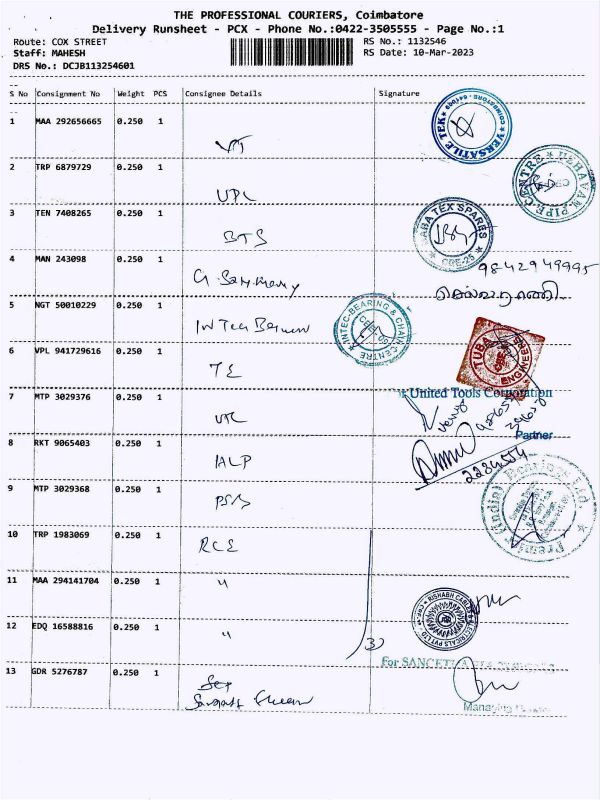 THE PROFESSIONAL COURIERS, Coimbatore
Delivery Runsheet - PCX - Phone No.:0422-3505555 - Page No.:1
Route: COX STREET RS No.: 1132546
Staff: MAHESH RS Date: 10-Mar-2023
DRS No.: DCJB113254601
S No Consignment No Weight PCS Consignee Details Signature
1 MAA 292656665 0.250 1 VT
VERSATILE TEK COIMBATORE
2 TRP 6879729 0.250 1 UPC
PIPE CENTRE
3 TEN 7408265 0.250 1 BTS
TEX SPARES CBE-25
4 MAN 243098 0.250 1 G.
9842949995
செல்வராணி
5 NGT 50010229 0.250 1 INTec
INTEC-BEARING & CHAIN CENTRE
6 VPL 941729616 0.250 1 TE
TUBA ENGINEERS
7 MTP 3029376 0.250 1 UTC
United Tools Corporation
Partner
8 RKT 9065403 0.250 1 ALP
2284554
9 MTP 3029368 0.250 1 PSB
Premier (India) Bearings Ltd.
10 TRP 1983069 0.250 1 RCE
11 MAA 294141704 0.250 1 "
RISHABH ELECTRICALS PVT LTD
12 EDQ 16588816 0.250 1 "
3
For
13 GDR 5276787 0.250 1
Managing